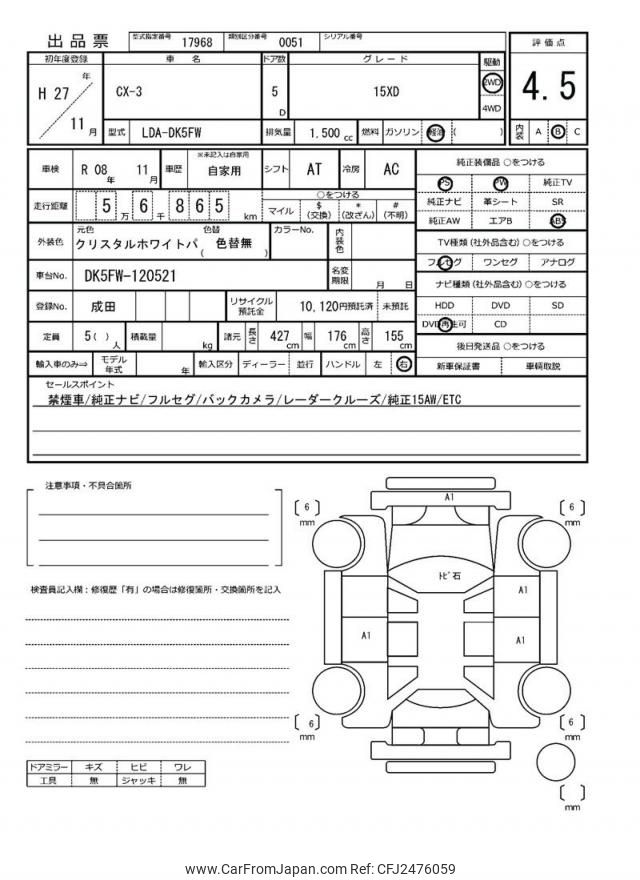 出品票 型式指定番号 17968 類別区分番号 0051 シリアル番号
評価点
4.5
内装 A B C
初年度登録 車名 ドア数 グレード 駆動
H 27 年 11 月 CX-3 5 D 15XD 2WD 4WD
型式 LDA-DK5FW 排気量 1,500 cc 燃料 ガソリン 軽油 ( )
車検 R 08 年 11 月 車歴 ※未記入は自家用 自家用 シフト AT 冷房 AC
走行距離 5 万 6 千 8 6 5 km ○をつける
マイル $ (交換) * (改ざん) # (不明)
外装色 元色 クリスタルホワイトパ 色替 ( 色替無 ) カラーNo. 内装色
車台No. DK5FW-120521 名変期限 月 日
登録No. 成田 リサイクル預託金 10,120円預託済 未預託
定員 5( ) 人 積載量 kg 諸元 長さ 427 cm 幅 176 cm 高さ 155 cm
輸入車のみ⇒ モデル年式 年 輸入区分 ディーラー 並行 ハンドル 左 右
純正装備品 ○をつける
PS PW 純正TV
純正ナビ 革シート SR
純正AW エアB ABS
TV種類 (社外品含む) ○をつける
フルセグ ワンセグ アナログ
ナビ種類 (社外品含む) ○をつける
HDD DVD SD
DVD再生可 CD
後日発送品 ○をつける
新車保証書 車輌取説
セールスポイント
禁煙車/純正ナビ/フルセグ/バックカメラ/レーダークルーズ/純正15AW/ETC
注意事項・不具合箇所
検査員記入欄：修復歴「有」の場合は修復箇所・交換箇所を記入
ドアミラー キズ ヒビ ワレ
工具 無 ジャッキ 無
A1
[ 6 ] mm
[ 6 ] mm
ﾄﾋﾞ石
A1
A1
A1
[ 6 ] mm
[ 6 ] mm
[ ] mm
www.CarFromJapan.com Ref: CFJ2476059